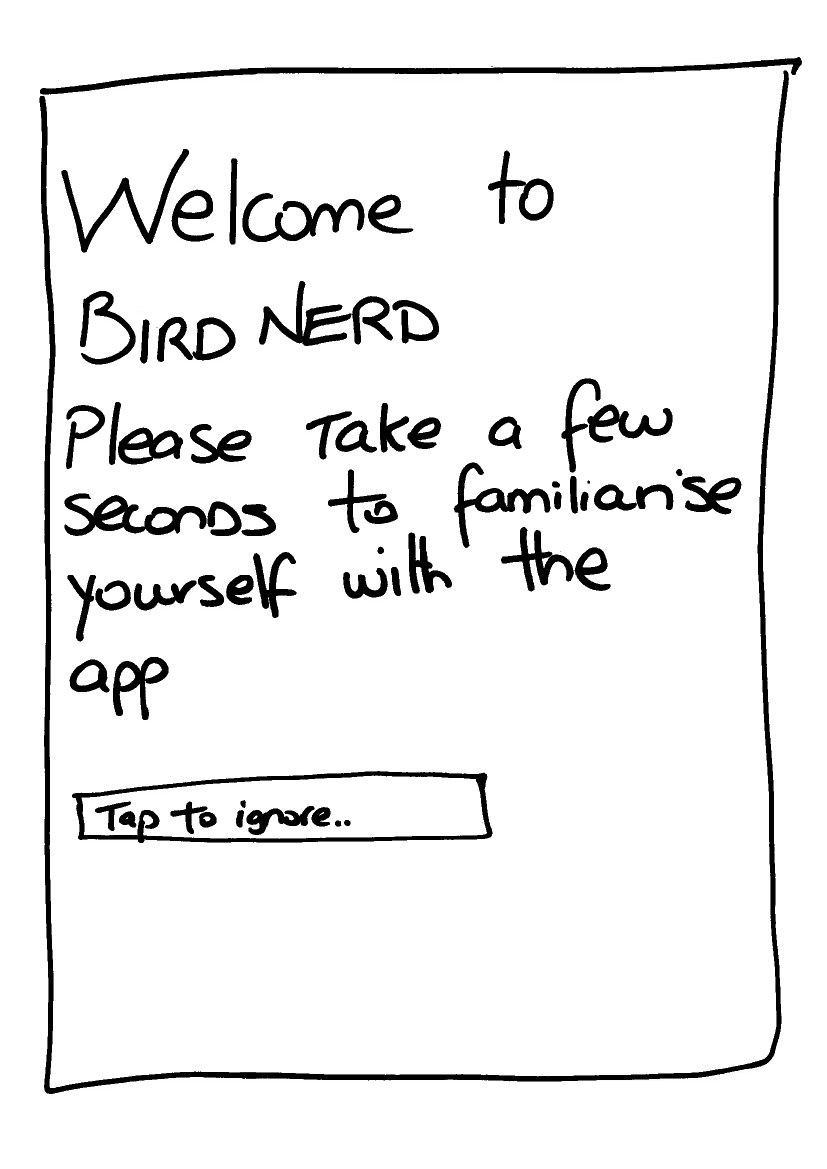 Welcome to
BIRD NERD
Please Take a few
seconds to familiarise
yourself with the
app
Tap to ignore..